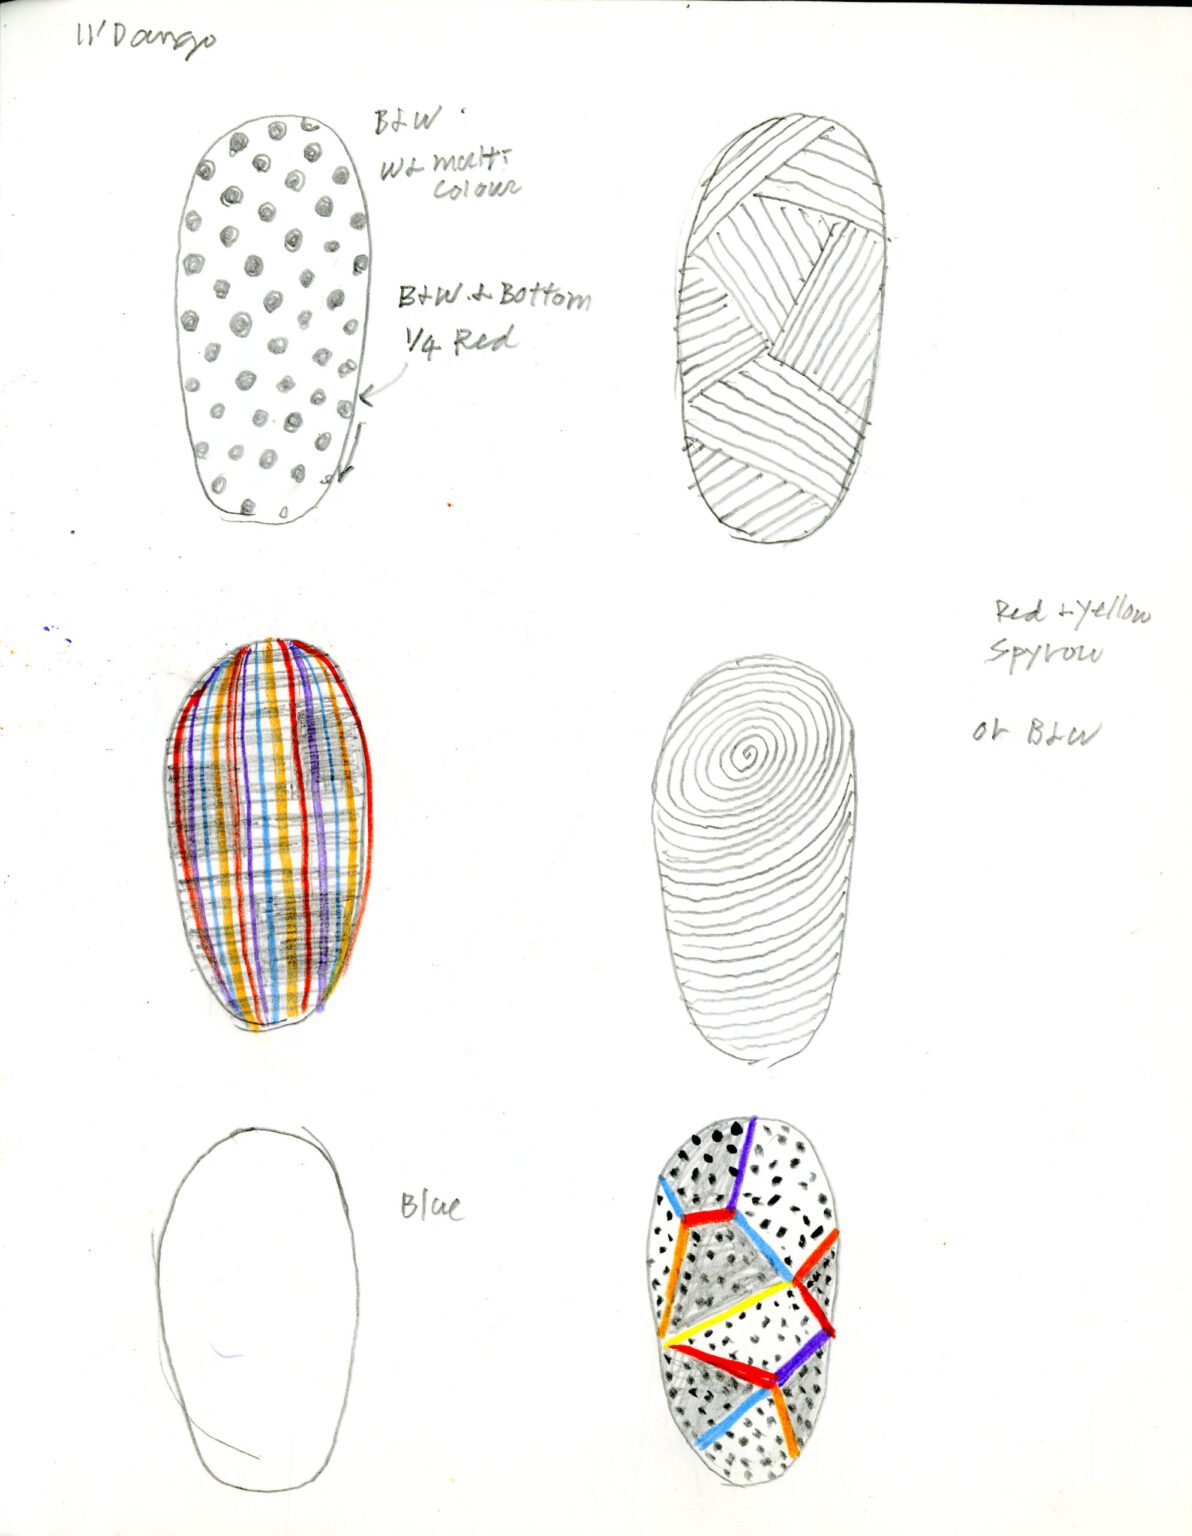 11' Dango
B&W
W& multi
colour
B&W & Bottom
1/4 Red
Red & Yellow
Spyrow
or B&W
Blue